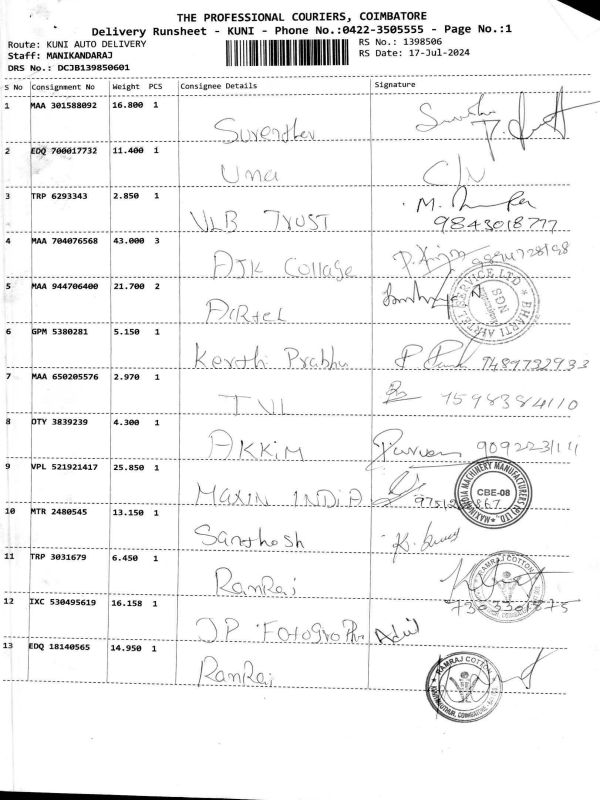 THE PROFESSIONAL COURIERS, COIMBATORE
Delivery Runsheet - KUNI - Phone No.:0422-3505555 - Page No.:1
Route: KUNI AUTO DELIVERY RS No.: 1398506
Staff: MANIKANDARAJ RS Date: 17-Jul-2024
DRS No.: DCJB139850601
S No Consignment No Weight PCS Consignee Details Signature
1 MAA 301588092 16.800 1
Surendher
2 EDQ 700017732 11.400 1
Uma
3 TRP 6293343 2.850 1
VLB TRUST 9843018777
4 MAA 704076568 43.000 3
AJK Collage
5 MAA 944706400 21.700 2
AiRtel
BHARTI AIRTEL SERVICE LTD NGS
6 GPM 5380281 5.150 1
Kerthi Prabhu 7489732933
7 MAA 650205576 2.970 1
TVL 7598384110
8 OTY 3839239 4.300 1
AKKIM
9 VPL 521921417 25.850 1
MAXIN INDIA
MAXIN INDIA MACHINERY MANUFACTURERS (P) LTD. CBE-08
10 MTR 2480545 13.150 1
Santhosh
11 TRP 3031679 6.450 1
RamRaj
RAMRAJ COTTON
7303301875
12 IXC 530495619 16.158 1
JP
13 EDQ 18140565 14.950 1
RamRaj
RAMRAJ COTTON